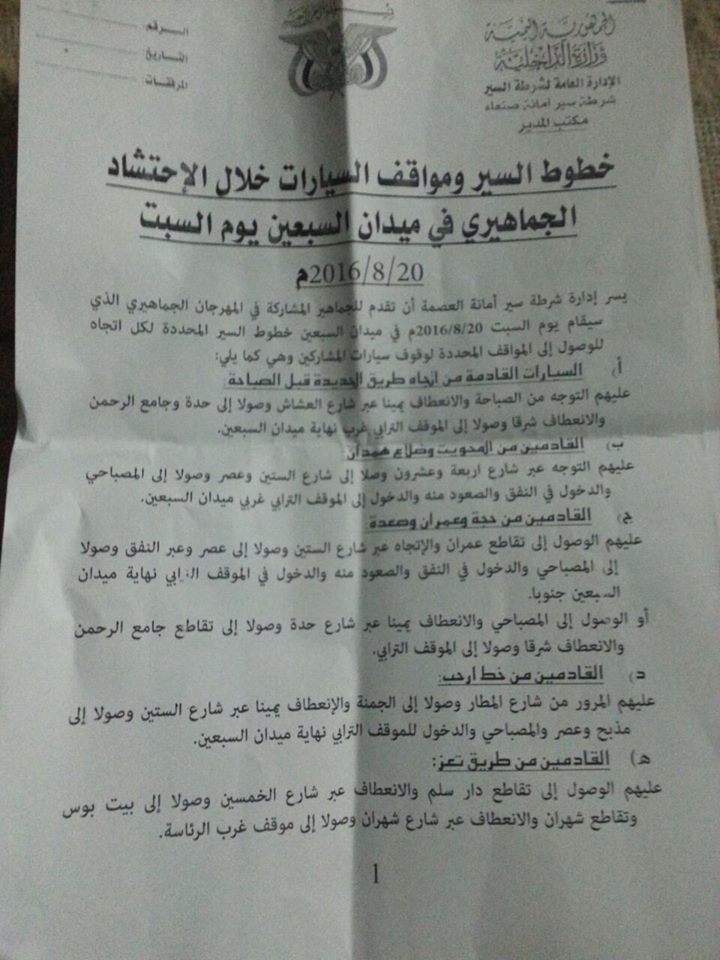 الجمهورية اليمنية
وزارة الداخلية
الإدارة العامة لشرطة السير
شرطة سير أمانة صنعاء
مكتب المدير
الرقم:
التاريخ:
المرفقات:
خطوط السير ومواقف السيارات خلال الإحتشاد
الجماهيري في ميدان السبعين يوم السبت
2016/8/20م
يسر إدارة شرطة سير أمانة العصمة أن تقدم للجماهير المشاركة في المهرجان الجماهيري الذي
سيقام يوم السبت 2016/8/20م في ميدان السبعين خطوط السير المحددة لكل اتجاه
للوصول إلى المواقف المحددة لوقوف سيارات المشاركين وهي كما يلي:
أ) السيارات القادمة من إتجاه طريق الحديدة قبل الصباحة:
عليهم التوجه من الصباحة والانعطاف يمينا عبر شارع العشاش وصولا إلى حدة وجامع الرحمن
والانعطاف شرقا وصولا إلى الموقف الترابي غرب نهاية ميدان السبعين.
ب) القادمين من المحويت وضلاع همدان:
عليهم التوجه عبر شارع اربعة وعشرون وصلا إلى شارع الستين وعصر وصولا إلى المصباحي
والدخول في النفق والصعود منه والدخول إلى الموقف الترابي غربي ميدان السبعين.
ج) القادمين من حجة وعمران وصعدة
عليهم الوصول إلى تقاطع عمران والإتجاه عبر شارع الستين وصولا إلى عصر وعبر النفق وصولا
إلى المصباحي والدخول في النفق والصعود منه والدخول في الموقف الترابي نهاية ميدان
السبعين جنوبا.
أو الوصول إلى المصباحي والانعطاف يمينا عبر شارع حدة وصولا إلى تقاطع جامع الرحمن
والانعطاف شرقا وصولا إلى الموقف الترابي.
د) القادمين من خط ارحب:
عليهم المرور من شارع المطار وصولا إلى الجمنة والإنعطاف يمينا عبر شارع الستين وصولا إلى
مذبح وعصر والمصباحي والدخول للموقف الترابي نهاية ميدان السبعين.
هـ) القادمين من طريق تعز:
عليهم الوصول إلى تقاطع دار سلم والانعطاف عبر شارع الخمسين وصولا إلى بيت بوس
وتقاطع شهران والانعطاف عبر شارع شهران وصولا إلى موقف غرب الرئاسة.
1